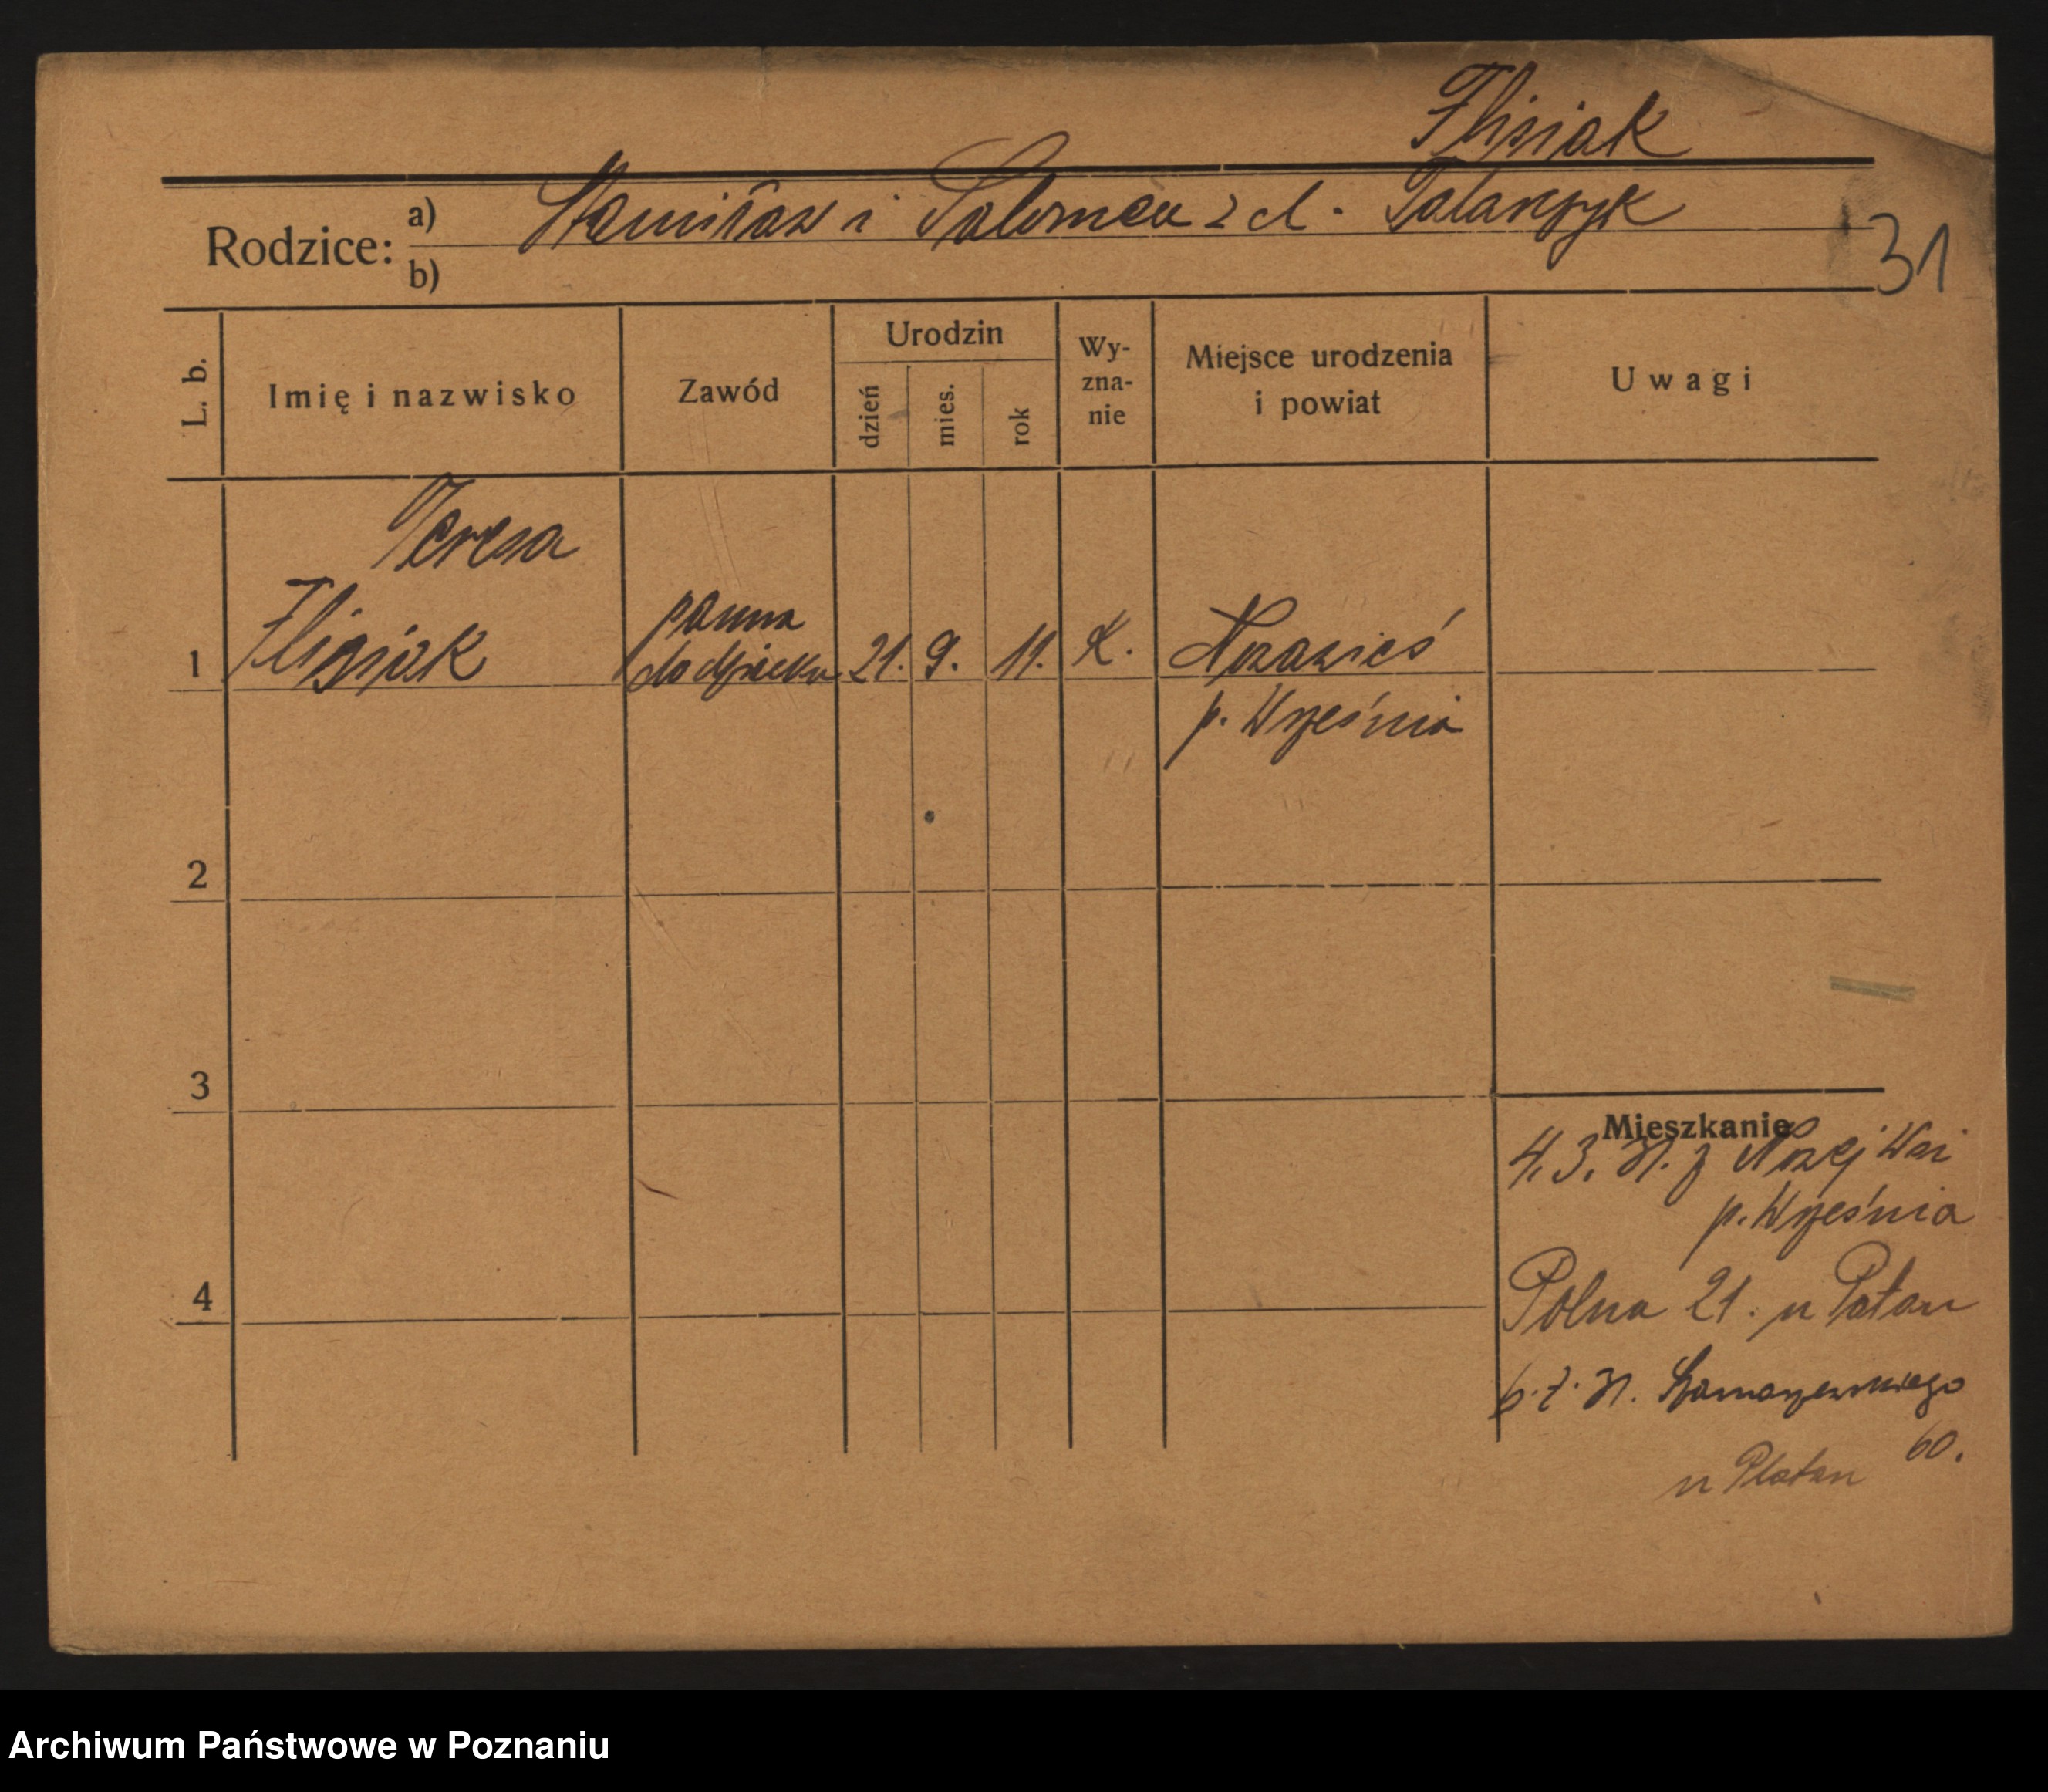 Flisiak
Rodzice: a) Stanisław i Salomea z d. Talarczyk
b)
31
L. b.
Imię i nazwisko
Zawód
Urodzin
dzień
mies.
rok
Wy-
zna-
nie
Miejsce urodzenia
i powiat
Uwagi
Teresa
1 Flisiak
panna
do dziecka
21. 9. 11. K.
p. Września
2
3
4
Mieszkanie
4.3.31. z Wsi
p. Września
Polna 21. u
31. Szamarzewskiego
60.
u Platan
Archiwum Państwowe w Poznaniu